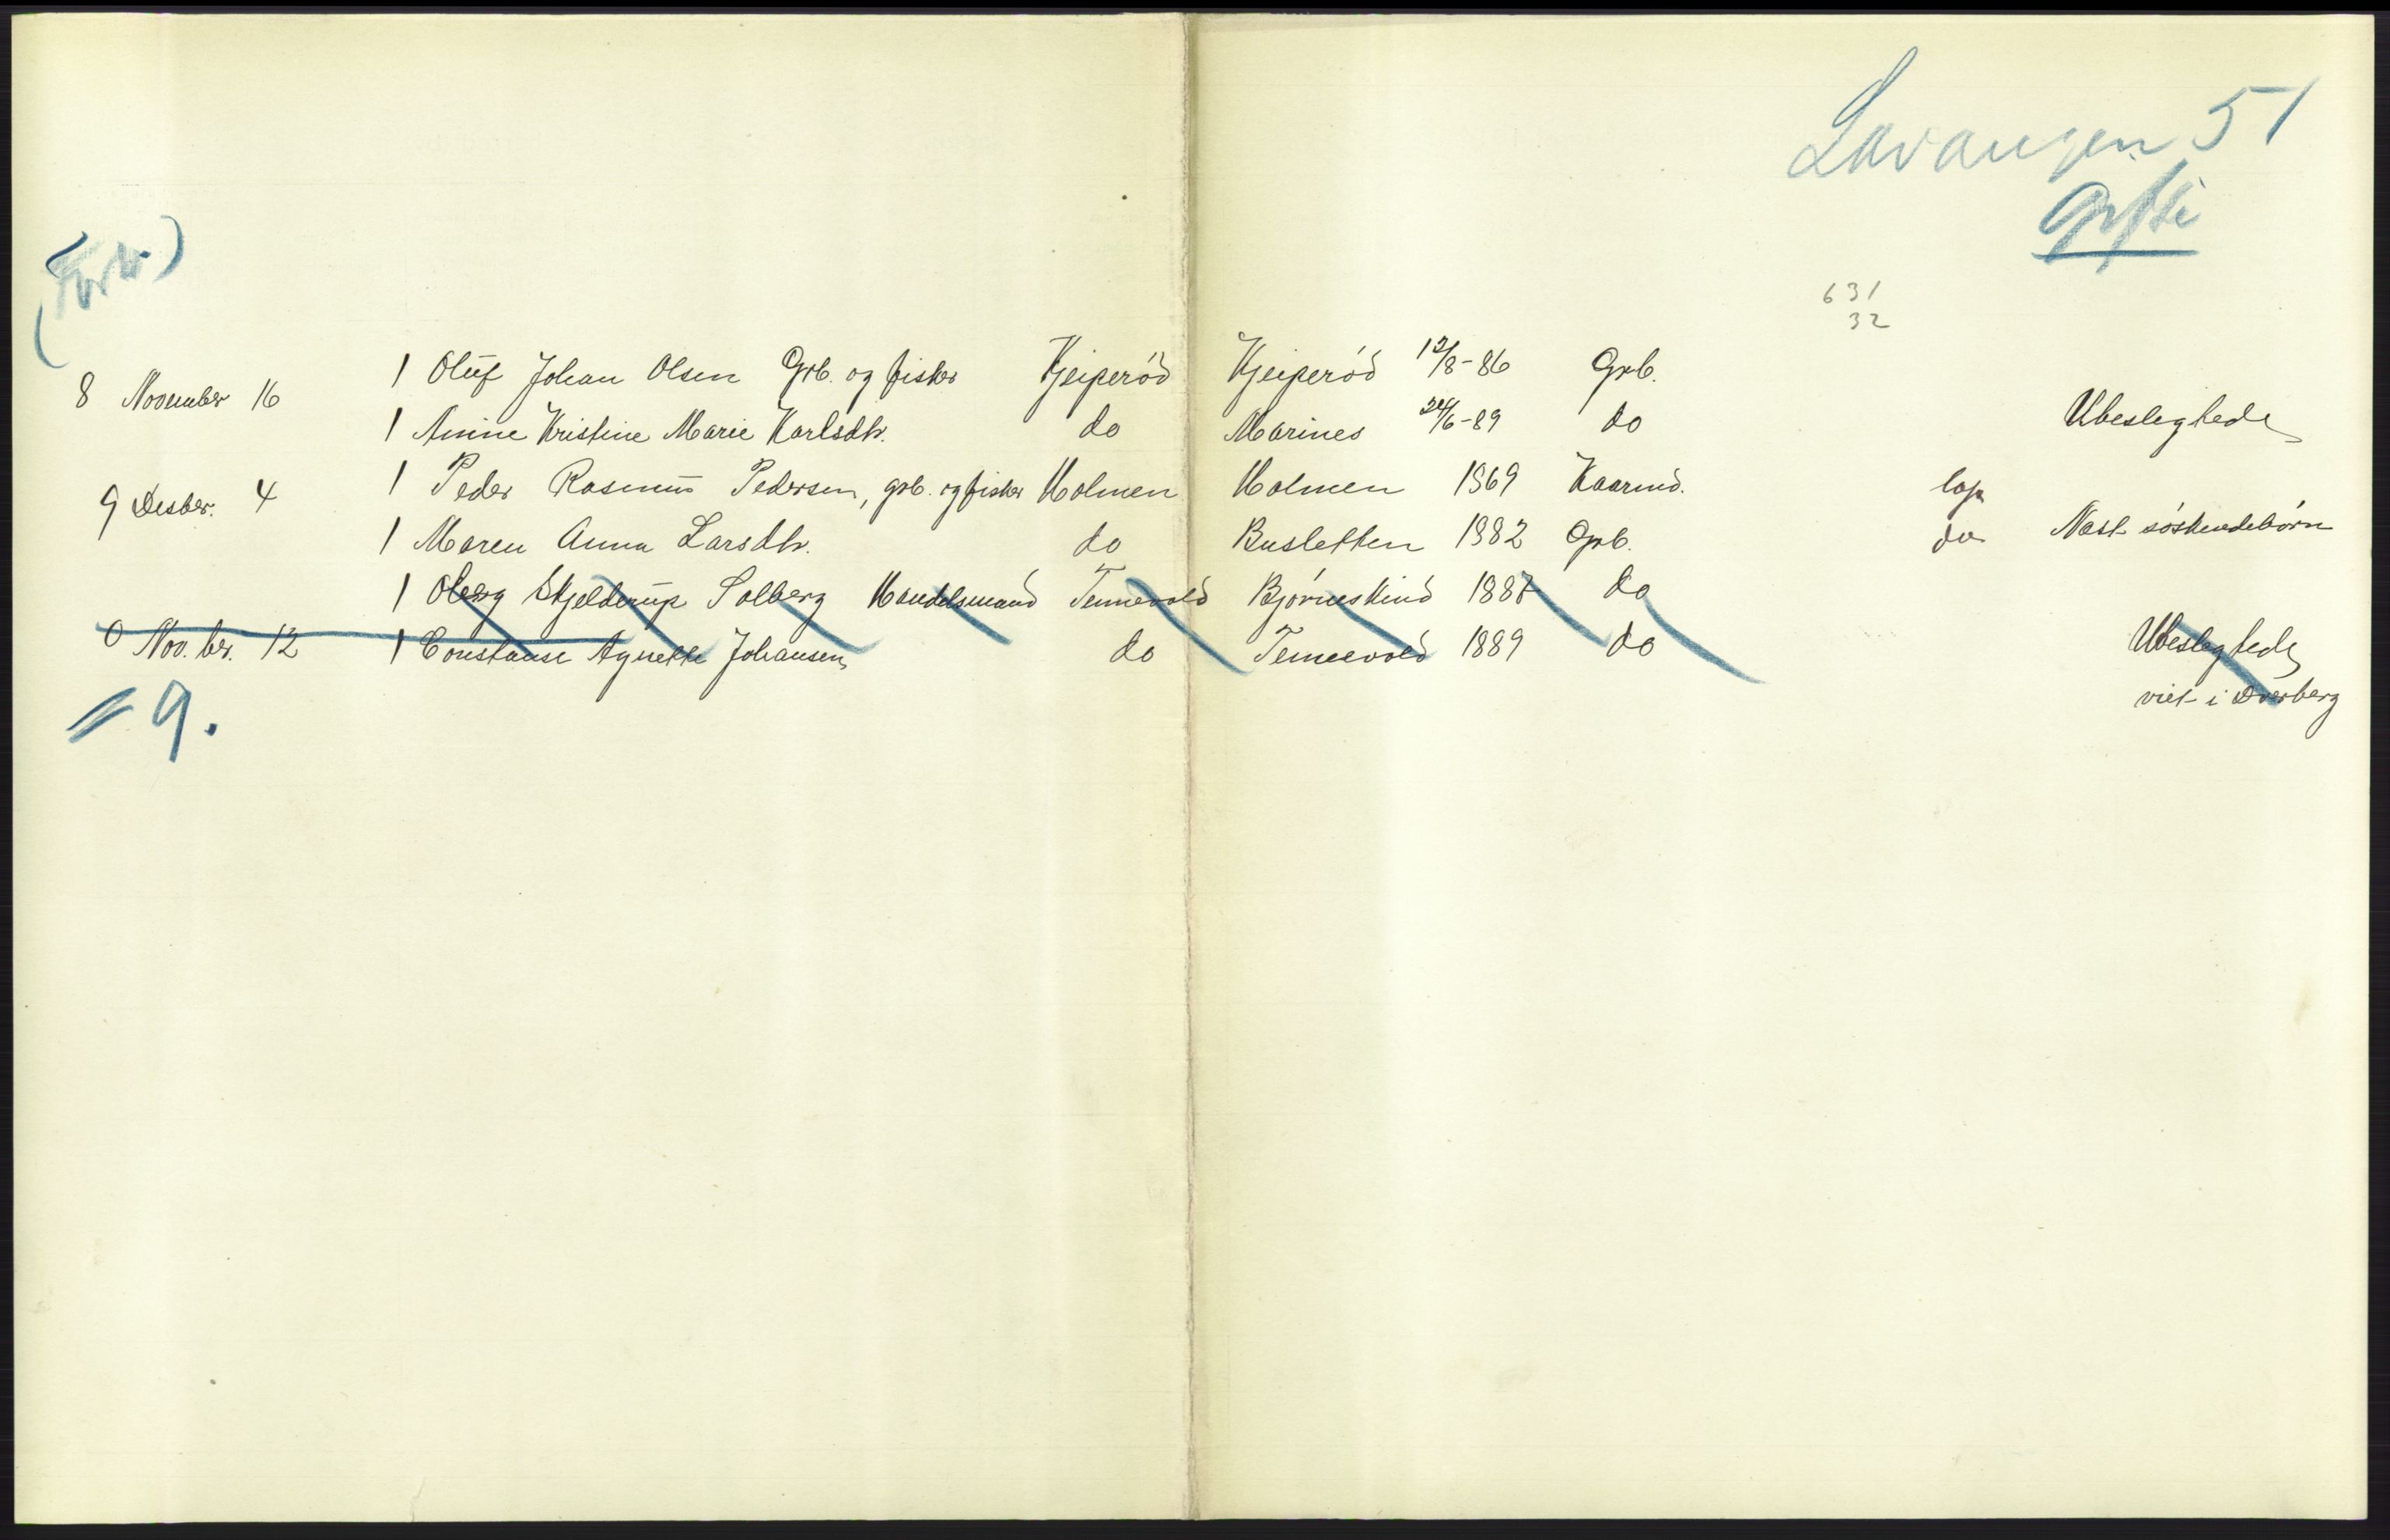 Lavangen 51
Gifte
(Forts.)
631
32
1 Oluf Johan Olsen Grb. og fisker Kjeiperód Kjeiperód 12/8-86 Grb.
8 November 16 1 Anine Kristine Marie Karlsdtr. do Marines 24/6-89 do Ubeslegtede
1 Peder Rasmus Pedersen, grb. og fisker Holmen Holmen 1869 Kaarmd. lap
9 Desber. 4 1 Maren Anna Larsdtr. do Busletten 1882 Grb. do Næst søskendebørn
1 Skjelderup Solberg Handelsmand Tennevold Bjørneskind 1887 do
0 Nov.ber. 12 1 Constanse Agnette Johansen do Tennevold 1889 do Ubeslegtede
viet i Dverberg
= 9.